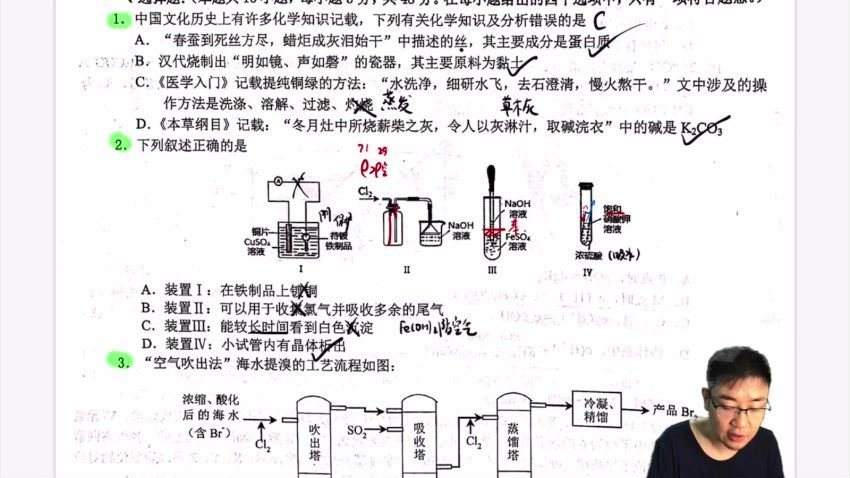 1. 中国文化历史上有许多化学知识记载，下列有关化学知识及分析错误的是 C
A.“春蚕到死丝方尽，蜡炬成灰泪始干”中描述的丝，其主要成分是蛋白质
B. 汉代烧制出“明如镜、声如磬”的瓷器，其主要原料为黏土
C.《医学入门》记载提纯铜绿的方法：“水洗净，细研水飞，去石澄清，慢火熬干。”文中涉及的操
作方法是洗涤、溶解、过滤、灼烧 蒸发 草木灰
D.《本草纲目》记载：“冬月灶中所烧薪柴之灰，令人以灰淋汁，取碱浣衣”中的碱是 K2CO3
2. 下列叙述正确的是
71 29
ρ>ρ空
A
Cl2
NaOH
溶液
FeSO4
溶液
NaOH
溶液
饱和
硝酸钾
溶液
铜片
CuSO4
溶液
待镀
铁制品
浓硫酸 (吸水)
I II III IV
A. 装置Ⅰ：在铁制品上镀铜
B. 装置Ⅱ：可以用于收集氯气并吸收多余的尾气
C. 装置Ⅲ：能较长时间看到白色沉淀 Fe(OH)2 隔空气
D. 装置Ⅳ：小试管内有晶体析出
3. “空气吹出法”海水提溴的工艺流程如图：
浓缩、酸化
后的海水
(含 Br-)
Cl2
吹出塔
SO2
吸收塔
Cl2
蒸馏塔
冷凝、
精馏
产品 Br2